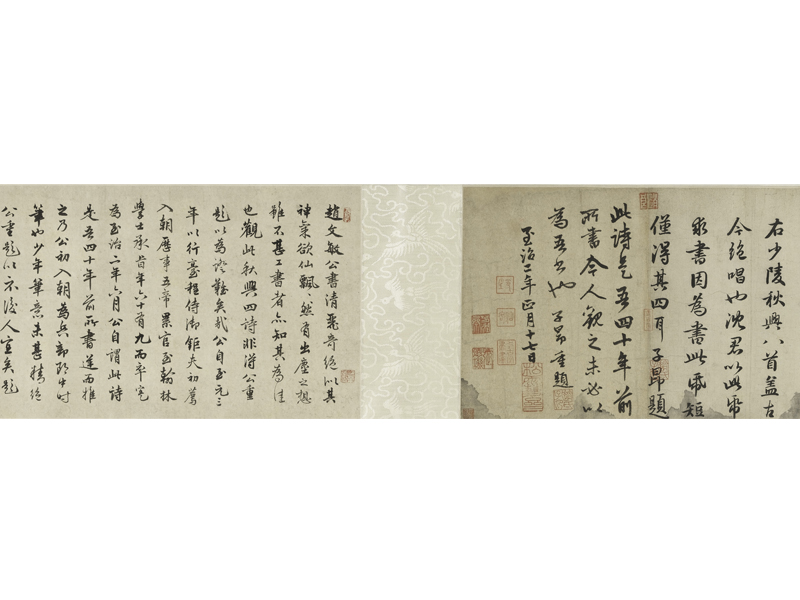 右少陵秋興八首蓋古
今絶唱也沈君以此帋
求書因為書此帋短
僅得其四耳子昂題
此詩是吾四十年前
所書今人觀之未必以
為吾書也子昂重題
至治二年正月十七日
趙文敏公書清飛奇絶以其
神氣欲仙飄飄然有出塵之想
雖不甚工書者亦知其為佳
也觀此秋興四詩非得公重
題以為證難矣哉公自至元三
年以行臺程侍御鉅夫初薦
入朝歷事五帝累官至翰林
學士承旨年六十有九而卒寔
為至治二年六月公自謂此詩
是吾四十年前所書遂而推
之乃公初入朝為兵部郎中時
筆也少年筆意未甚精絶
公重題以示後人宜矣題